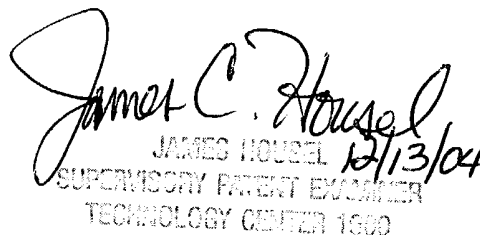 James C. Housel
12/13/04
JAMES HOUSEL
SUPERVISORY PATENT EXAMINER
TECHNOLOGY CENTER 1600